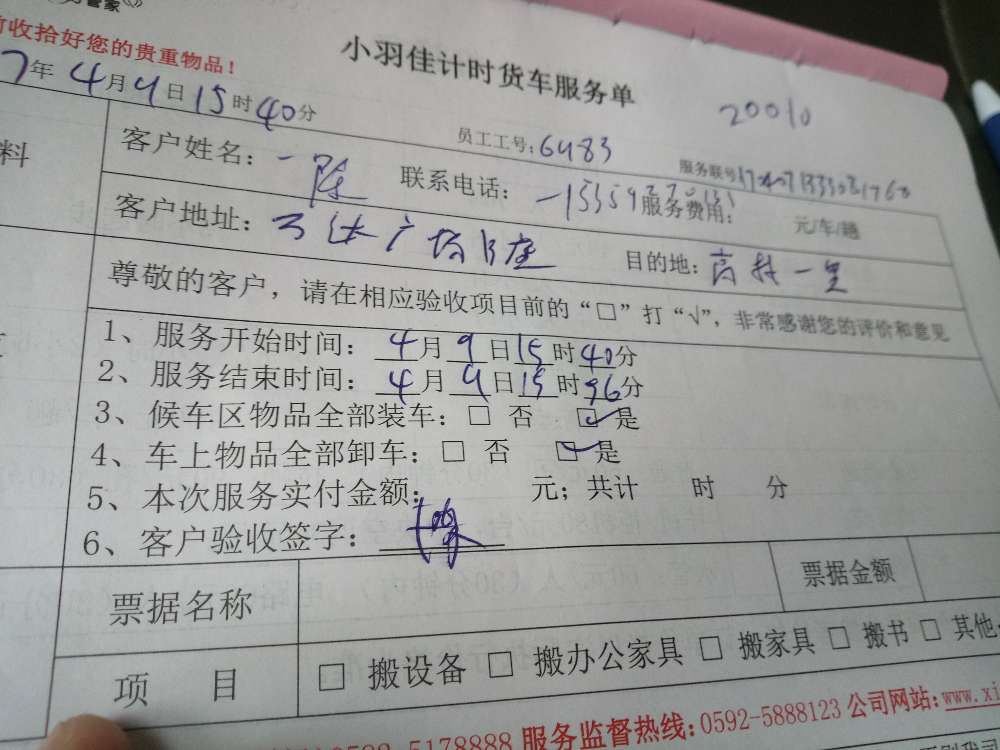 管家
前收拾好您的贵重物品!
小羽佳计时货车服务单
7年4月9日15时40分
20010
员工工号:6483
服务联号
料
客户姓名: 陈
联系电话:
服务费用: 元/车/趟
客户地址: 万达广场B座
目的地: 高林一里
尊敬的客户，请在相应验收项目前的“□”打“√”，非常感谢您的评价和意见
1、服务开始时间: 4月9日15时40分
2、服务结束时间: 4月9日15时96分
3、候车区物品全部装车: □ 否 ☑ 是
4、车上物品全部卸车: □ 否 ☑ 是
5、本次服务实付金额: 元; 共计 时 分
6、客户验收签字:
票据名称
票据金额
项 目
□ 搬设备 □ 搬办公家具 □ 搬家具 □ 搬书 □ 其他:
5178888 服务监督热线:0592-5888123 公司网站:www.xi